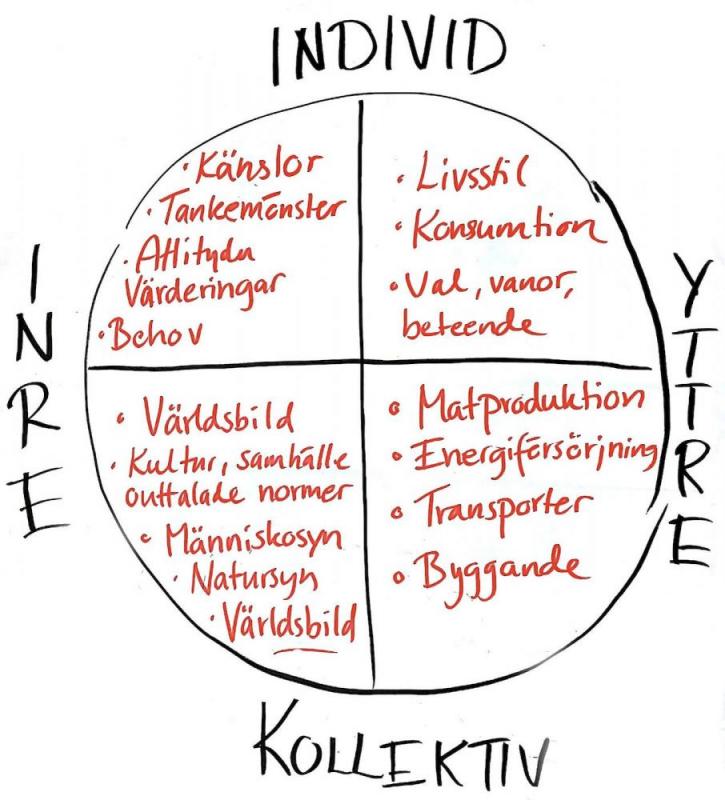 INDIVID
INRE
YTTRE
• Känslor
• Tankemönster
• Attityder
Värderingar
• Behov
• Livsstil
• Konsumtion
• Val, vanor,
beteende
• Världsbild
• Kultur, samhälle
outtalade normer
• Människosyn
• Natursyn
• Världsbild
• Matproduktion
• Energiförsörjning
• Transporter
• Byggande
KOLLEKTIV